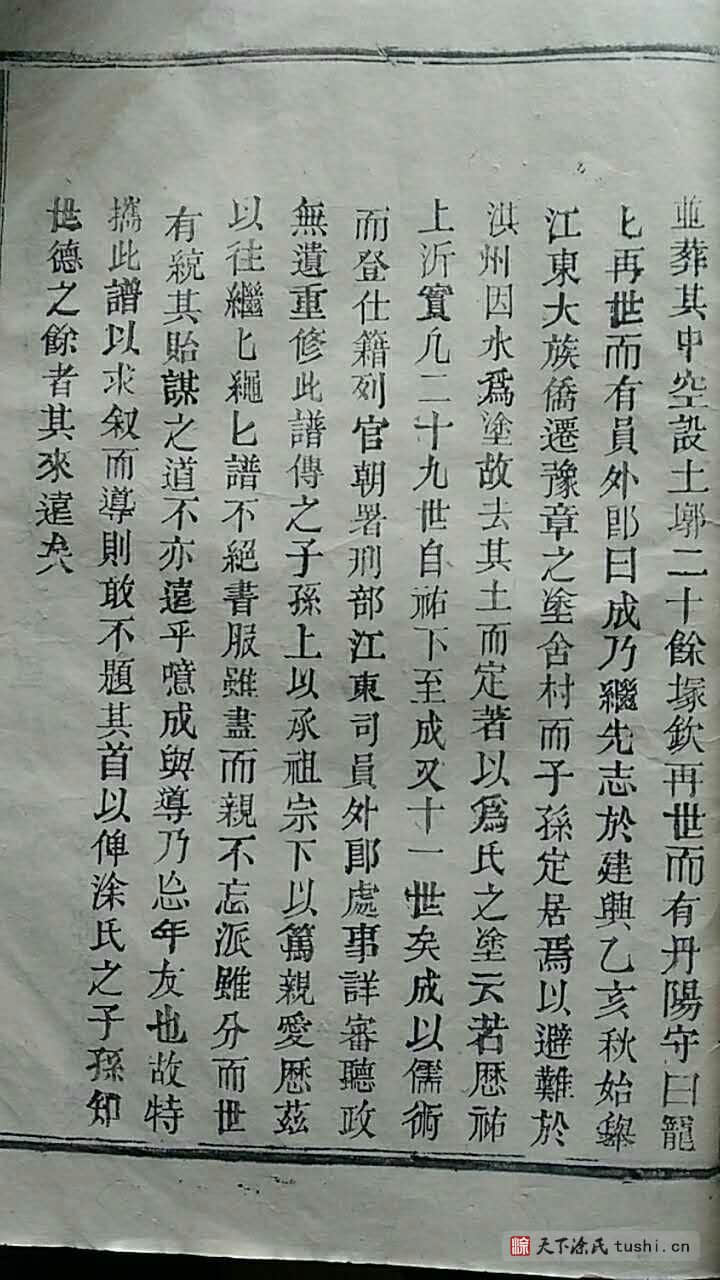 並葬其中空設土墎二十餘塚欽再世而有丹陽守曰寵
匕再世而有員外郎曰成乃繼先志於建興乙亥秋始舉
江東大族僑遷豫章之塗舍村而子孫定居焉以避難於
洪州因水爲塗故去其土而定著以爲氏之塗云若歴祐
上泝實凢二十九世自祐下至成又十一世矣成以儒術
而登仕籍列官朝署刑部江東司員外郎處事詳審聽政
無遺重修此譜傳之子孫上以承祖宗下以篤親愛歴茲
以往繼匕繩匕譜不絕書服雖盡而親不忘派雖分而世
有統其貽謀之道不亦遠乎噫成與導乃忘年友也故特
擕此譜以求叙而導則敢不題其首以俾涂氏之子孫知
世德之餘者其來遠矣
涂 天下涂氏 tushi.cn